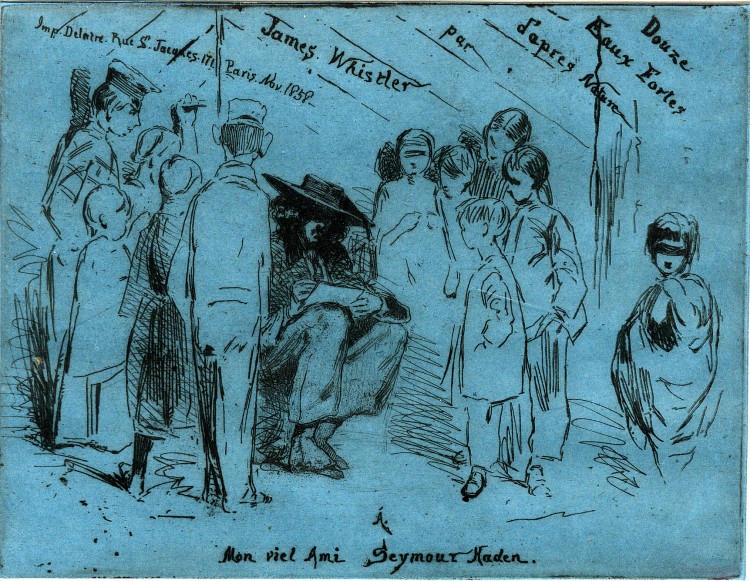 Douze
Eaux Fortes
d'après Nature
par
James Whistler
Imp. Delatre. Rue St. Jacques. 171. Paris. Nov. 1858.
A.
Mon viel Ami Seymour Haden.